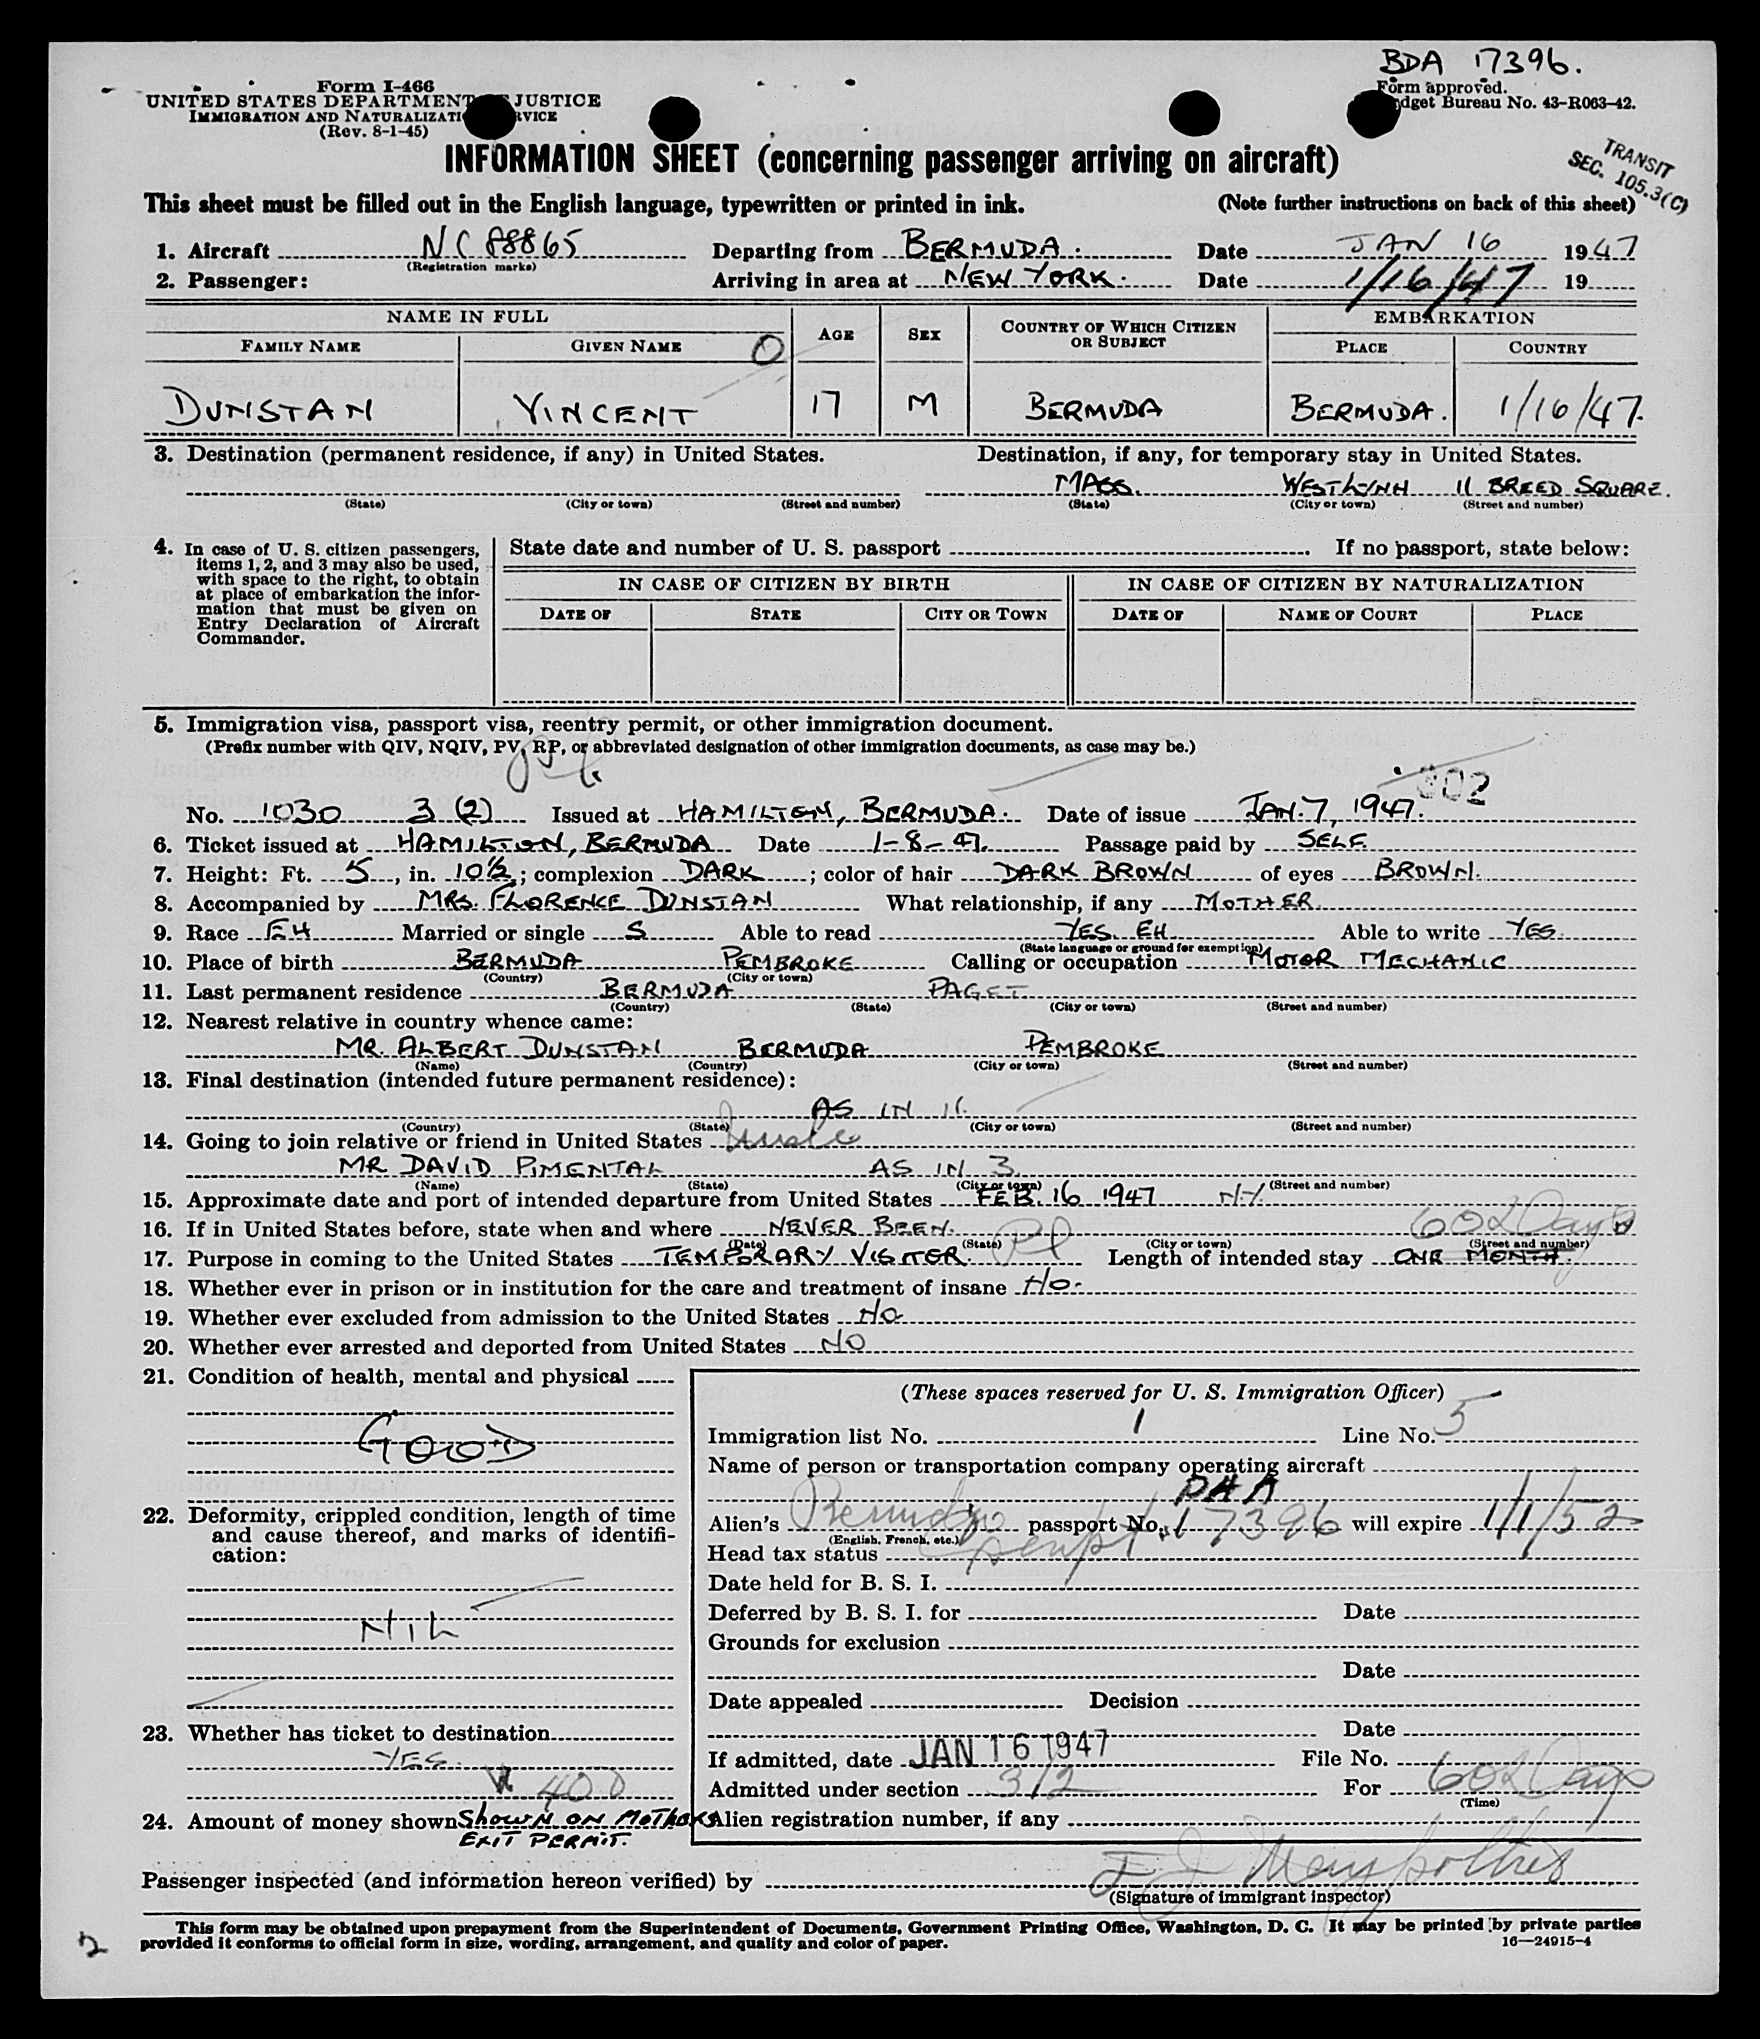 BDA 17396.
Form I-466
UNITED STATES DEPARTMENT JUSTICE
IMMIGRATION AND NATURALIZATI RVICE
(Rev. 8-1-45)
Form approved.
dget Bureau No. 43-R063-42.
TRANSIT
SEC. 105.3(C)
INFORMATION SHEET (concerning passenger arriving on aircraft)
This sheet must be filled out in the English language, typewritten or printed in ink. (Note further instructions on back of this sheet)
1. Aircraft NC 88865 Departing from BERMUDA. Date JAN 16 1947
(Registration marks)
2. Passenger: Arriving in area at NEW YORK. Date 1/16/47 19
NAME IN FULL AGE SEX COUNTRY OF WHICH CITIZEN OR SUBJECT EMBARKATION
FAMILY NAME GIVEN NAME PLACE COUNTRY
DUNSTAN VINCENT 17 M BERMUDA BERMUDA. 1/16/47.
3. Destination (permanent residence, if any) in United States. Destination, if any, for temporary stay in United States.
MASS. WEST LYNN 11 BREED SQUARE.
(State) (City or town) (Street and number) (State) (City or town) (Street and number)
4. In case of U. S. citizen passengers, items 1, 2, and 3 may also be used, with space to the right, to obtain at place of embarkation the information that must be given on Entry Declaration of Aircraft Commander.
State date and number of U. S. passport If no passport, state below:
IN CASE OF CITIZEN BY BIRTH IN CASE OF CITIZEN BY NATURALIZATION
DATE OF STATE CITY OR TOWN DATE OF NAME OF COURT PLACE
5. Immigration visa, passport visa, reentry permit, or other immigration document.
(Prefix number with QIV, NQIV, PV, RP, or abbreviated designation of other immigration documents, as case may be.)
302
No. 1030 3 (2) Issued at HAMILTON, BERMUDA. Date of issue JAN. 7, 1947.
6. Ticket issued at HAMILTON, BERMUDA Date 1-8-47. Passage paid by SELF.
7. Height: Ft. 5, in. 10½; complexion DARK; color of hair DARK BROWN of eyes BROWN.
8. Accompanied by MRS. FLORENCE DUNSTAN What relationship, if any MOTHER.
9. Race EH Married or single S Able to read YES. EH Able to write YES.
(State language or ground for exemption)
10. Place of birth BERMUDA PEMBROKE Calling or occupation MOTOR MECHANIC
(Country) (City or town)
11. Last permanent residence BERMUDA PAGET
(Country) (State) (City or town) (Street and number)
12. Nearest relative in country whence came:
MR. ALBERT DUNSTAN BERMUDA PEMBROKE
(Name) (Country) (City or town) (Street and number)
13. Final destination (intended future permanent residence):
AS IN 11.
(Country) (State) (City or town) (Street and number)
14. Going to join relative or friend in United States
MR DAVID PIMENTAL AS IN 3.
(Name) (State) (City or town) (Street and number)
15. Approximate date and port of intended departure from United States FEB. 16 1947 N.Y.
16. If in United States before, state when and where NEVER BEEN.
(Date) (State) (City or town) (Street and number)
60 Days
17. Purpose in coming to the United States TEMPORARY VISITER. Length of intended stay ONE MONTH.
18. Whether ever in prison or in institution for the care and treatment of insane No.
19. Whether ever excluded from admission to the United States No
20. Whether ever arrested and deported from United States NO
21. Condition of health, mental and physical
GOOD
22. Deformity, crippled condition, length of time and cause thereof, and marks of identification:
NIL
23. Whether has ticket to destination
YES.
400
24. Amount of money shown SHOWN ON MOTHERS
EXIT PERMIT.
(These spaces reserved for U. S. Immigration Officer)
Immigration list No. 1 Line No. 5
Name of person or transportation company operating aircraft
PAA
Alien's Bermuda passport No. 17396 will expire 1/1/52
(English, French, etc.)
Head tax status Exempt
Date held for B. S. I.
Deferred by B. S. I. for Date
Grounds for exclusion
Date
Date appealed Decision
Date
If admitted, date JAN 16 1947 File No.
Admitted under section 3/2 For 60 Days
(Time)
Alien registration number, if any
Passenger inspected (and information hereon verified) by
(Signature of immigrant inspector)
This form may be obtained upon prepayment from the Superintendent of Documents, Government Printing Office, Washington, D. C. It may be printed by private parties
provided it conforms to official form in size, wording, arrangement, and quality and color of paper. 16—24915-4
2